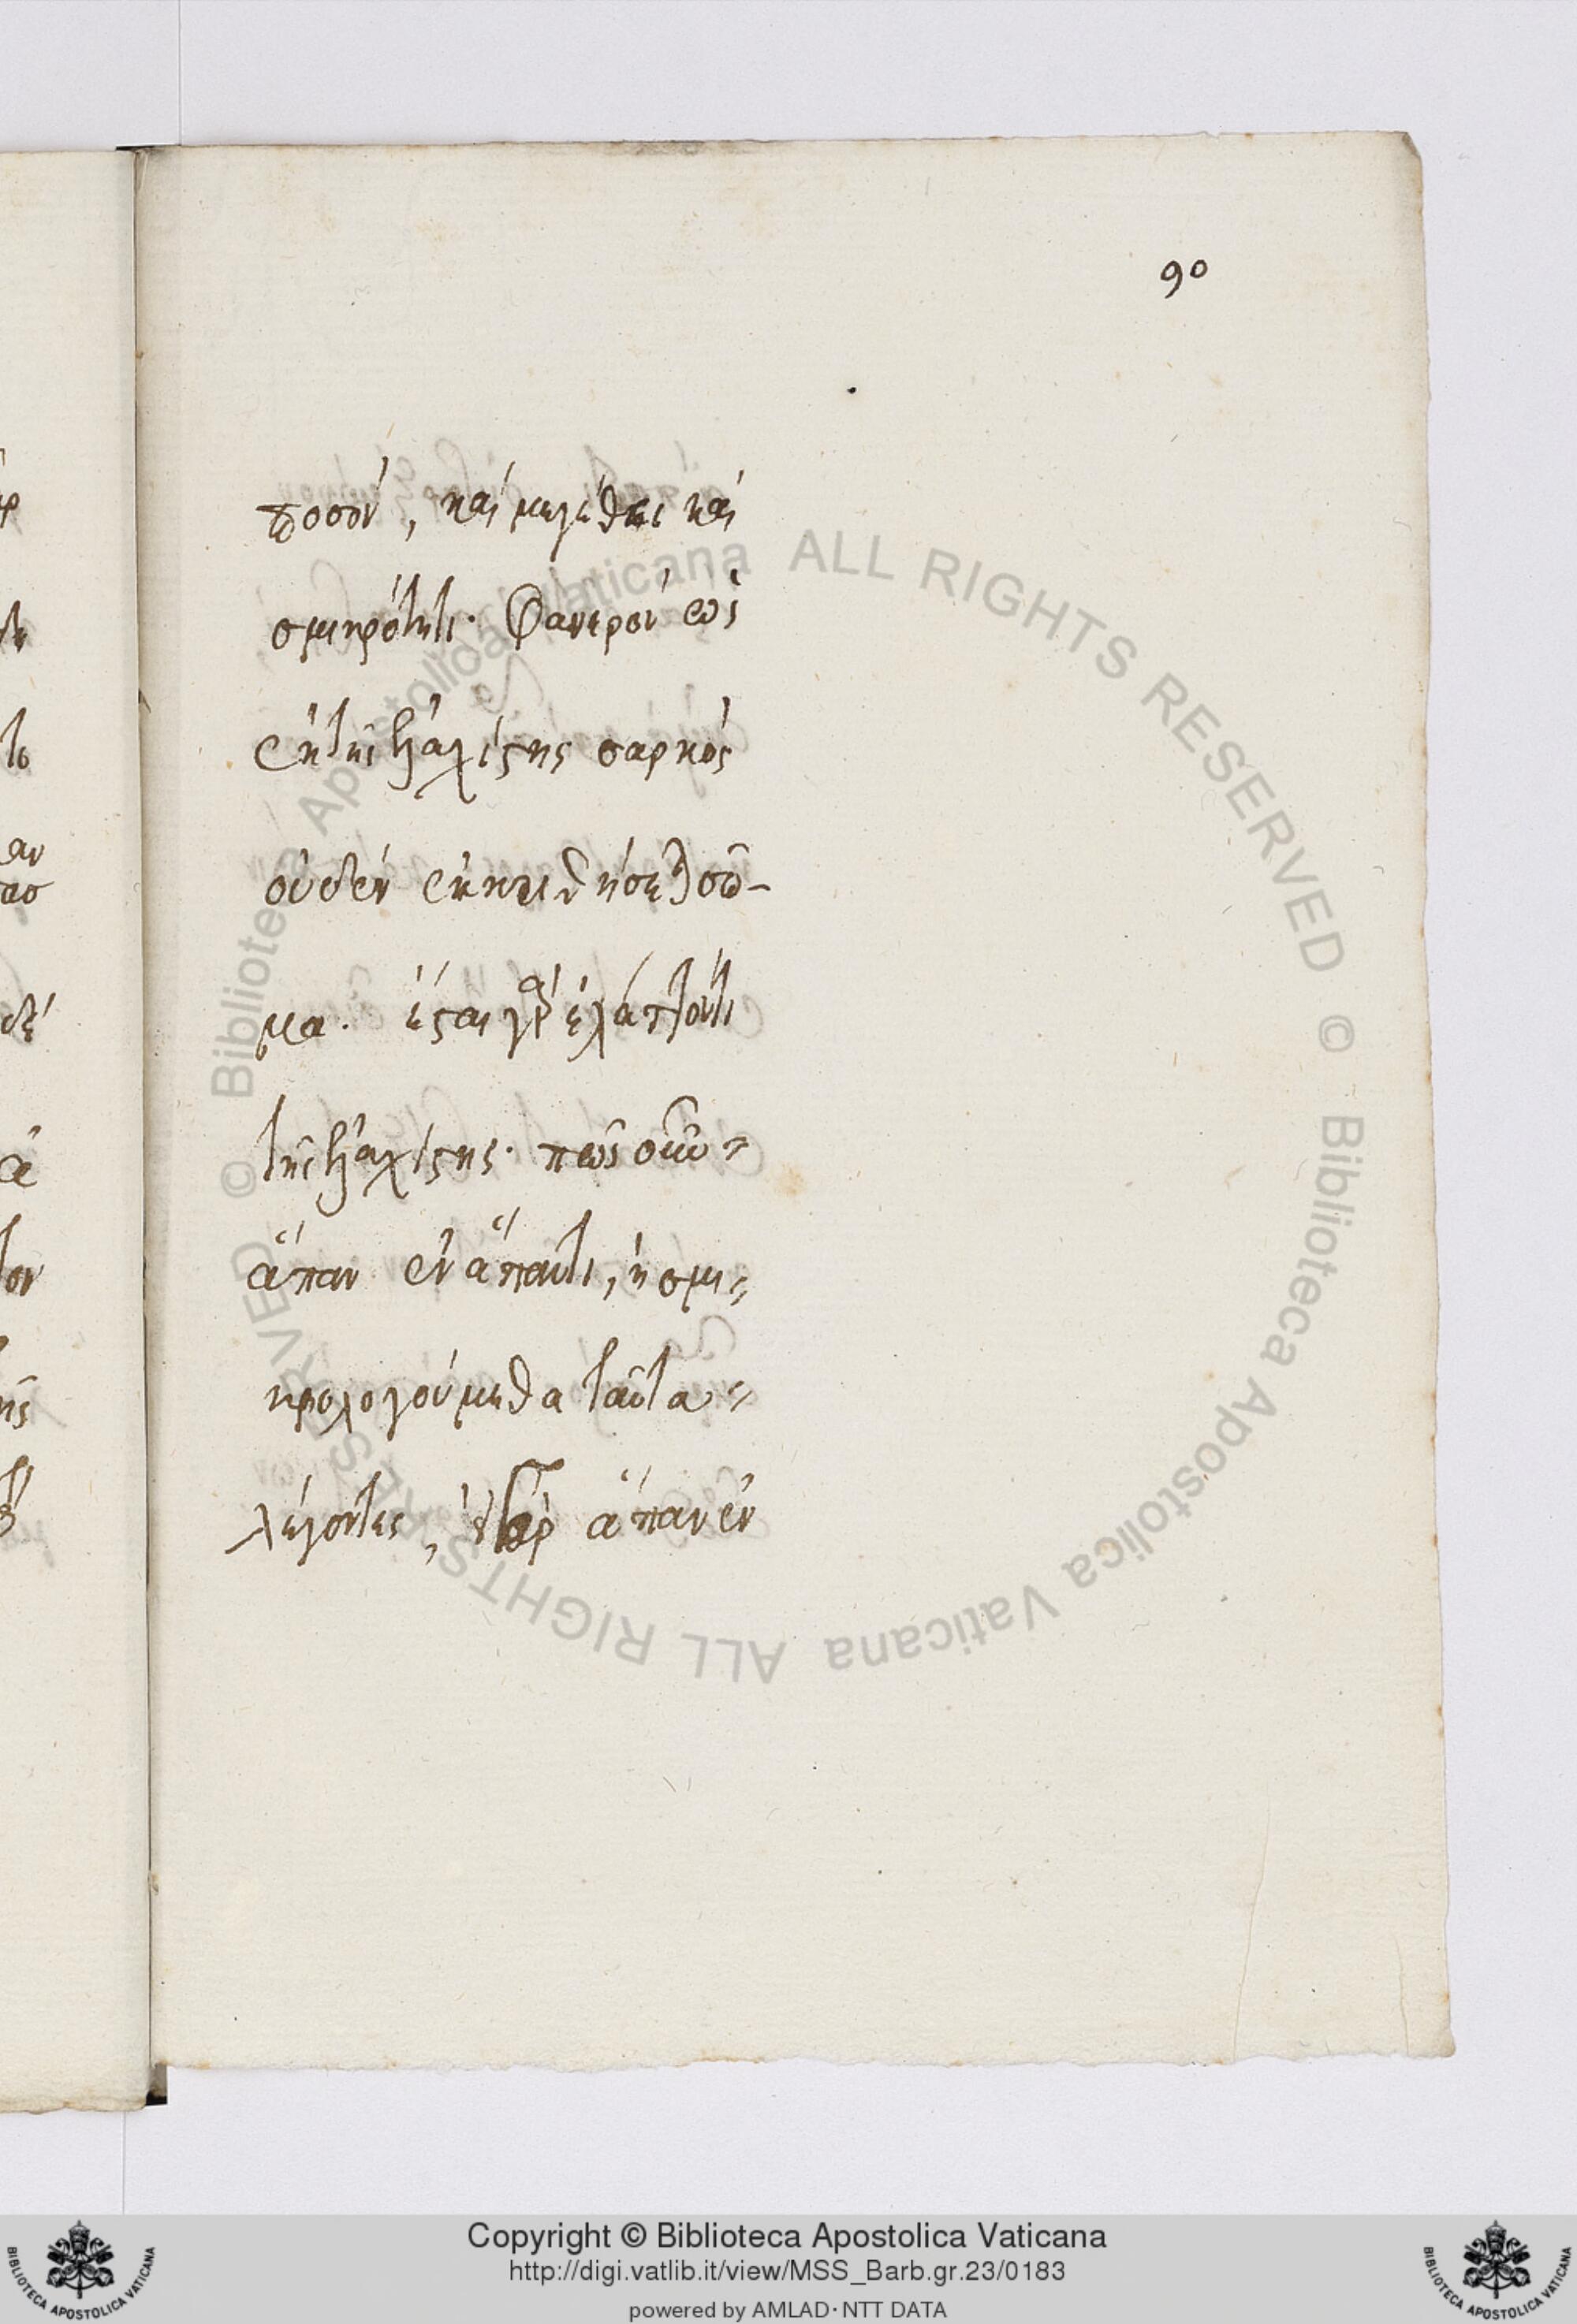 90
ποσόν, καὶ μεγέθει καὶ
σμικρότητι. Φανερὸν ὡς
ἐκ τῆς ἐλαχίστης σαρκὸς
οὐδὲν ἐκκριθήσεται σῶ-
μα. ἔσται γὰρ ἐλάττον τι
τῆς ἐλαχίστης. πῶς οὖν
ἅπαν ἐν ἅπαντι, ἢ σμι-
κρολογούμεθα ταῦτα
λέγοντες, ἅπαν ἐν
© Biblioteca Apostolica Vaticana ALL RIGHTS RESERVED © Biblioteca Apostolica Vaticana ALL RIGHTS RESERVED
Copyright © Biblioteca Apostolica Vaticana
http://digi.vatlib.it/view/MSS_Barb.gr.23/0183
powered by AMLAD·NTT DATA
BIBLIOTECA APOSTOLICA VATICANA
BIBLIOTECA APOSTOLICA VATICANA